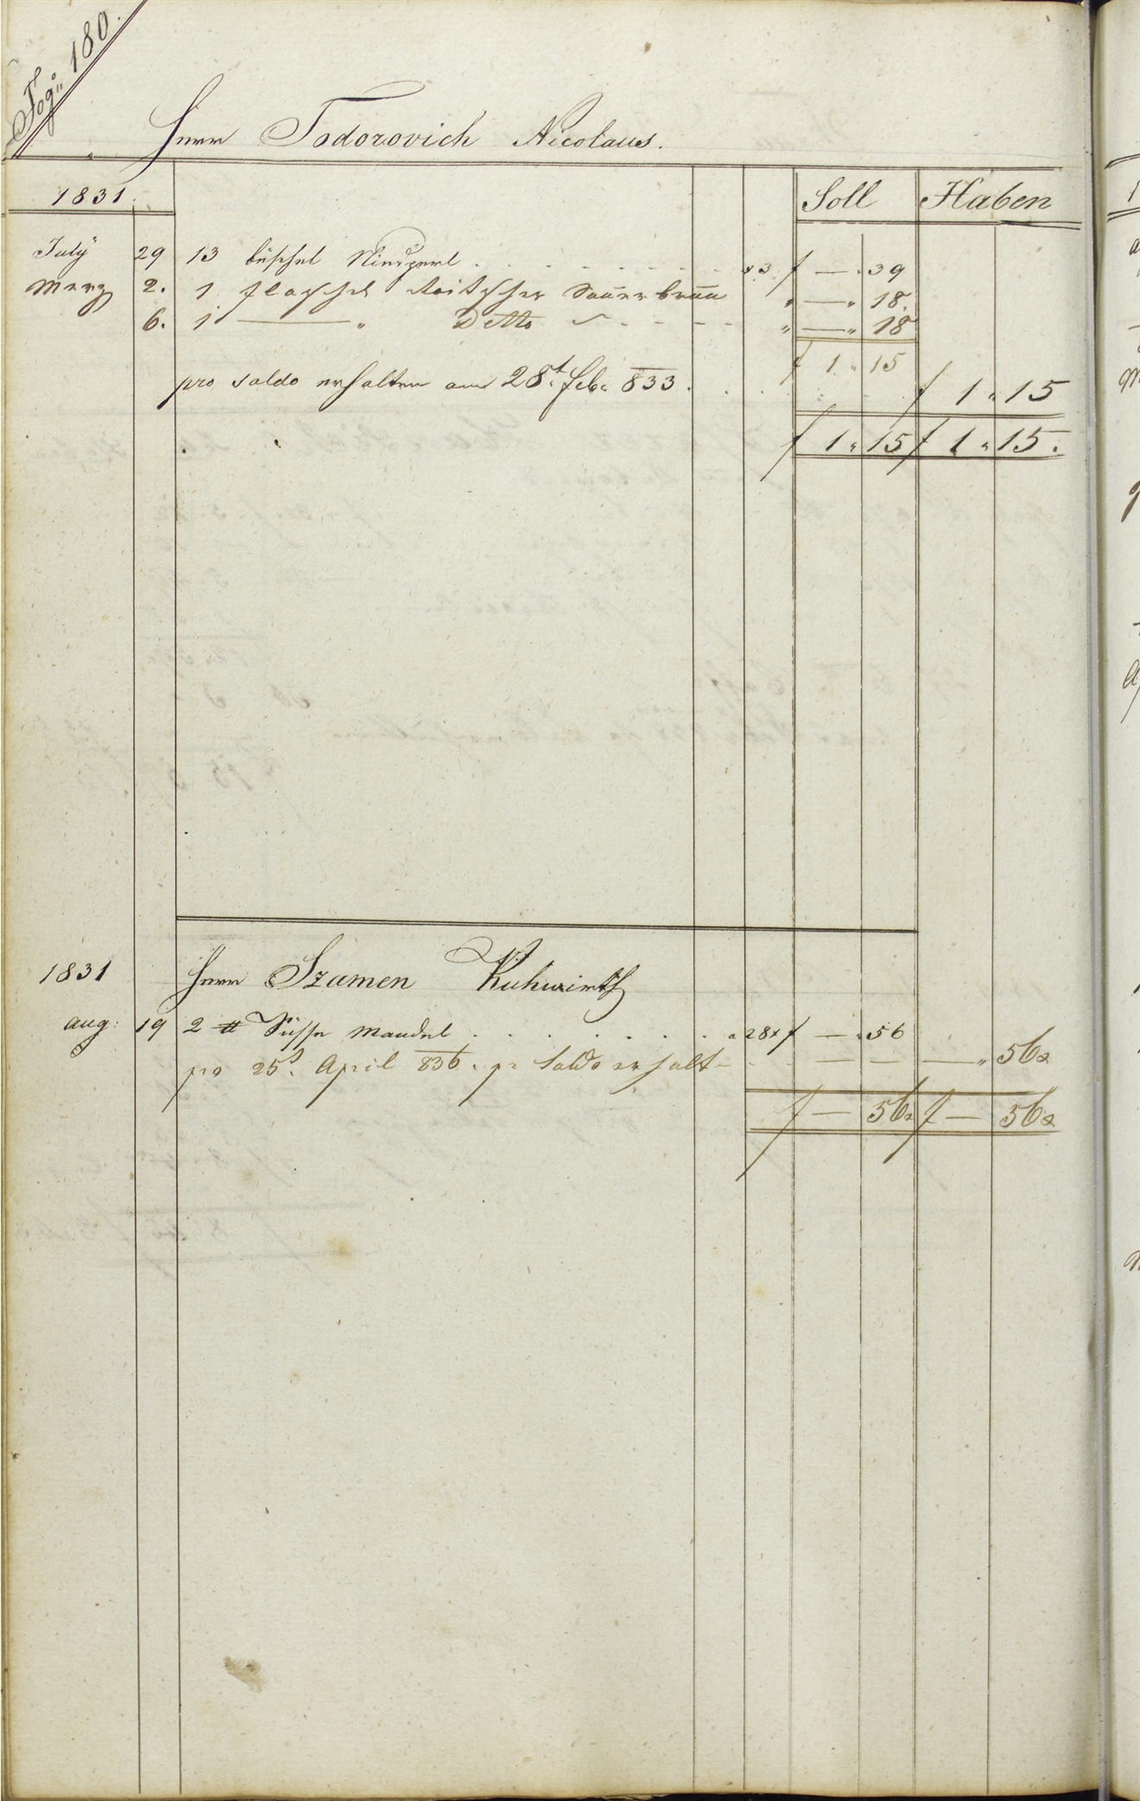 Fog: 180.
Herr Todorovich Nicolaus.
1831. Soll Haben
July 29 13 Büschel . . . . . . . . . x3 f — „ 39
Merz 2. 1 Flaschel Roitscher Sauerbrun „ — „ 18.
6. 1 — „ Detto „ — „ 18
f 1 „ 15
pro saldo erhalten am 28t. Feb. 833. . . . . f 1 „ 15
f 1 „ 15 f 1 „ 15.
1831 Herr Szamen Kuhwirth
Aug: 19 2 ℔ Süsse Mandel . . . . . . . a 28x f — „ 56
pro 25t. April 836. pr Saldo erhalt — — — — „ 56x
f — 56x f — 56x